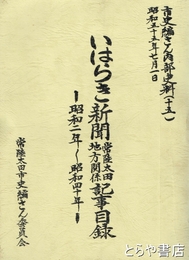 市史編さん内部史料(十三)
昭和五十五年七月一日
いはらき新聞常陸太田地方関係記事目録
ー昭和二年〜昭和四十年ー
常陸太田市史編さん委員会
とらや書店